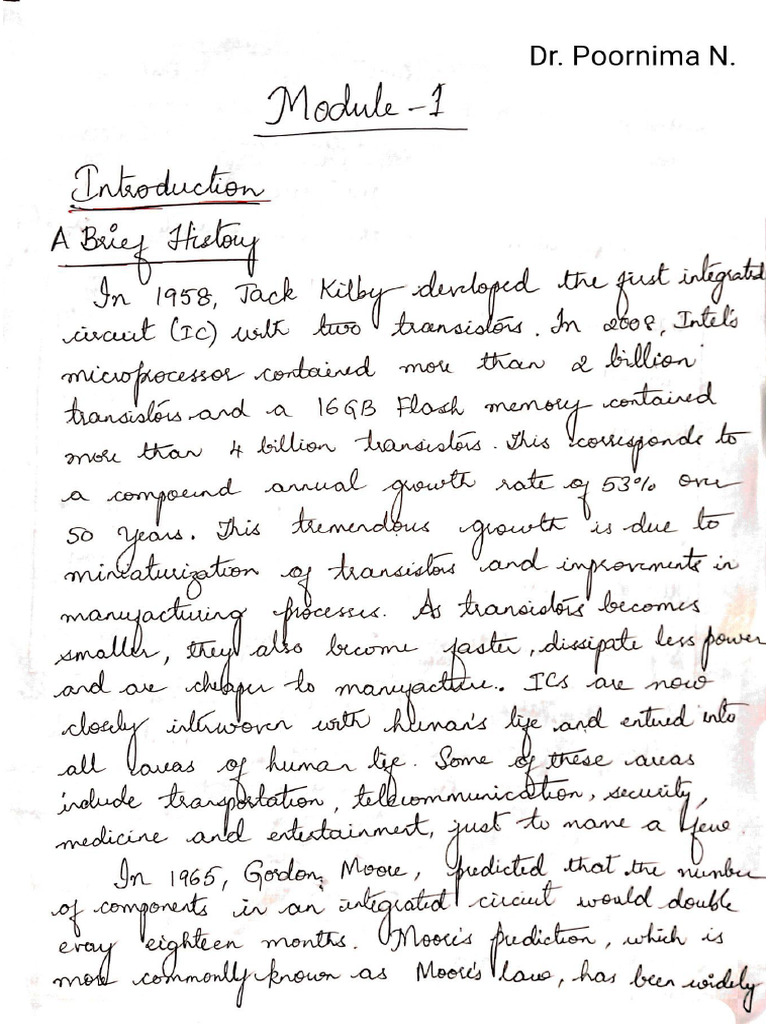 Dr. Poornima N.
Module-1
Introduction
A Brief History
In 1958, Jack Kilby developed the first integrated
circuit (IC) with two transistors. In 2008, Intel's
microprocessor contained more than 2 billion
transistors and a 16GB Flash memory contained
more than 4 billion transistors. This corresponds to
a compound annual growth rate of 53% over
50 years. This tremendous growth is due to
miniaturization of transistors and improvements in
manufacturing processes. As transistors becomes
smaller, they also become faster, dissipate less power
and are cheaper to manufacture. ICs are now
closely interwoven with human's life and entered into
all areas of human life. Some of these areas
include transportation, telecommunication, security,
medicine and entertainment, just to name a few.
In 1965, Gordon Moore, predicted that the number
of components in an integrated circuit would double
every eighteen months. Moore's prediction, which is
more commonly known as Moore's law, has been widely